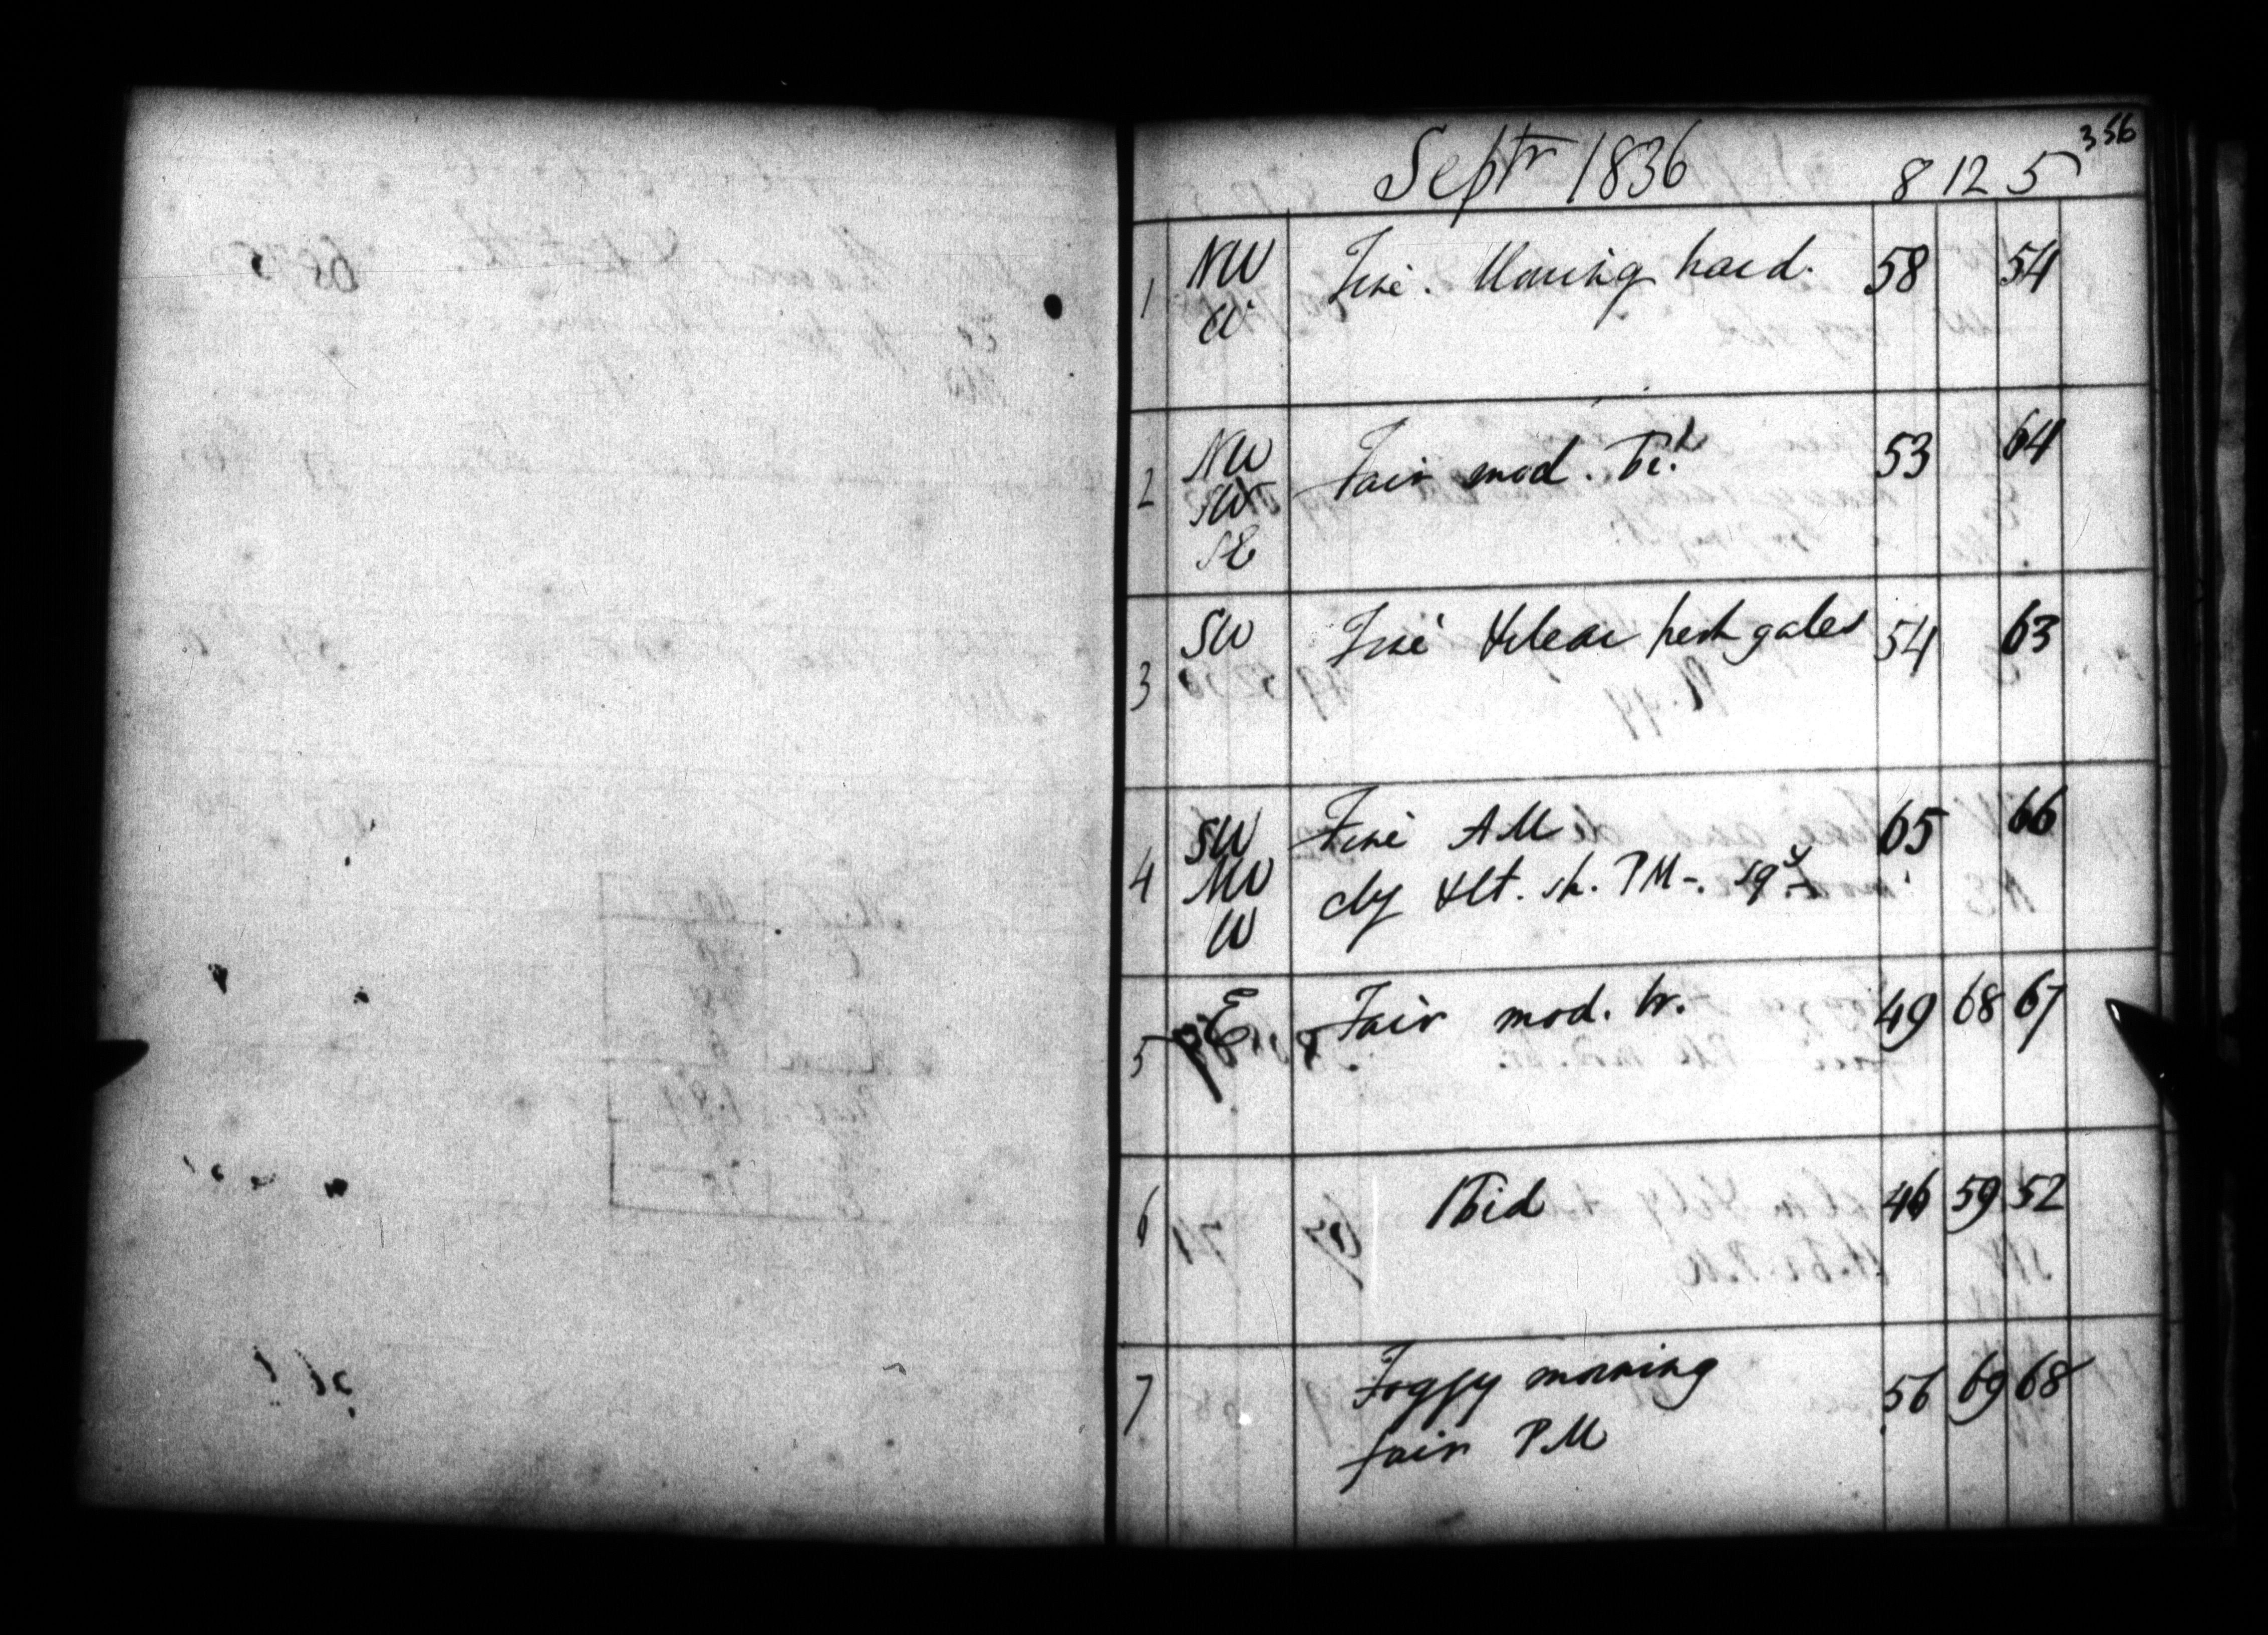 356
Septr 1836 8 12 5
1 NW Fine. blowing hard. 58 54
W
2 NW Fair mod. 53 64
SW
SE
3 SW Fine & clear fresh gales 54 63
4 SW Fine AM 65 66
NW cly & lt. sh. PM -.
W
5 E Fair mod. br. 49 68 67
6 Ibid 46 59 52
7 Foggy morning 56 69 68
fair PM